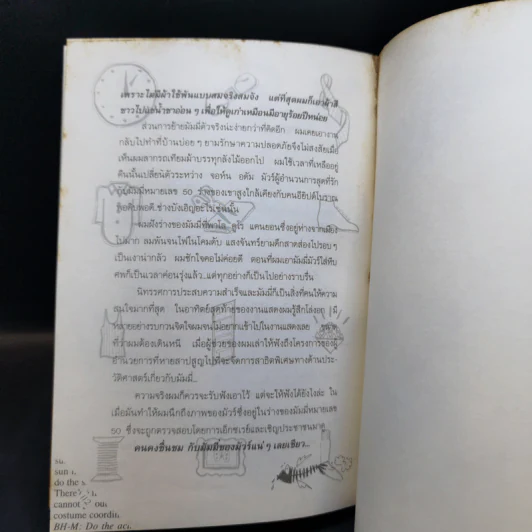 เพราะไม่มีผ้าใช้พันแบบสมจริงสมจัง แต่ที่สุดผมก็เอาผ้าสี
ขาวไปแช่น้ำชาอ่อน ๆ เพื่อให้ดูเก่าเหมือนมีอายุร้อยปีหน่อย
ส่วนการย้ายมัมมี่ตัวจริงน่ะง่ายกว่าที่คิดอีก ผมเคยเอางาน
กลับไปทำที่บ้านบ่อย ๆ ยามรักษาความปลอดภัยจึงไม่สงสัยเมื่อ
เห็นผมลากรถเทียมม้าบรรทุกลังไม้ออกไป ผมใช้เวลาที่เหลืออยู่
คืนนั้นเปลี่ยนตัวระหว่าง จอห์น อดัม มัวร์ผู้อำนวยการสุดที่รัก
กับมัมมี่หมายเลข 50 ร่างของเขาสูงใกล้เคียงกับคนอียิปต์โบราณ
พอดี ช่างบังเอิญอะไรเช่นนั้น
ผมฝังร่างของมัมมี่ที่ แคนยอนซึ่งอยู่ห่างจากเมือง
ไปมาก ลมพัดจนไฟในโคมดับ แสงจันทร์ยามดึกสาดส่องไปรอบ ๆ
เป็นเงาน่ากลัว ผมชักใจคอไม่ค่อยดี ตอนที่ผมเอามัมมี่มัวร์ใส่หีบ
ศพก็เป็นเวลาค่อนรุ่งแล้ว..แต่ทุกอย่างก็เป็นไปอย่างราบรื่น
นิทรรศการประสบความสำเร็จและมัมมี่ก็เป็นสิ่งที่คนให้ความ
สนใจมากที่สุด ในอาทิตย์สุดท้ายของงานแสดงผมรู้สึกโล่งอก มี
หลายอย่างรบกวนจิตใจผมจนไม่อยากเข้าไปในงานแสดงเลย
ที่ว่าผมต้องเดินหนี เมื่อผู้ช่วยของผมเล่าให้ฟังถึงโครงการของผู้
อำนวยการที่หายสาปสูญไปที่จะจัดการสาธิตพิเศษทางด้านประ-
วัติศาสตร์เกี่ยวกับมัมมี่...
ความจริงผมก็ควรจะรับฟังเอาไว้ แต่จะให้ฟังได้ยังไงล่ะ ใน
เมื่อมันทำให้ผมนึกถึงภาพของมัวร์ซึ่งอยู่ในร่างของมัมมี่หมายเลข
50 ซึ่งจะถูกตรวจสอบโดยการเอ็กซเรย์และเชิญประชาชนมาดู
คนคงชื่นชม กับมัมมี่ของมัวร์แน่ ๆ เลยเชียว...
sun
do the s
There
cannot ou
costume coordin
BH-M: Do the act